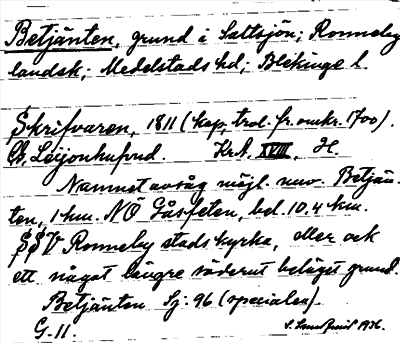 Betjänten, grund i Saltsjön; Ronneby
landsk; Medelstads hd; Blekinge l.
Skrifvaren, 1811 (kop, trol. fr. omkr. 1700).
C. Leijonhufvud. Kr.A. XVIII, H.
Namnet avsåg möjl. nuv. Betjän-
ten, 1 km. NÖ Gåsfeten, bel. 10,4 km.
SSV Ronneby stads kyrka, eller ock
ett något längre söderut beläget grund.
Betjänten Sj: 96 (specialen).
G. 11. 1936.